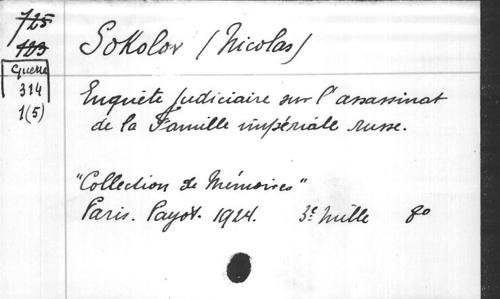 725
783
Guerre
314
1(5)
Sokolov (Nicolas)
Enquête judiciaire sur l'assassinat
de la Famille impériale russe.
"Collection de Mémoires"
Paris. Payot. 1924. 3e mille 8o